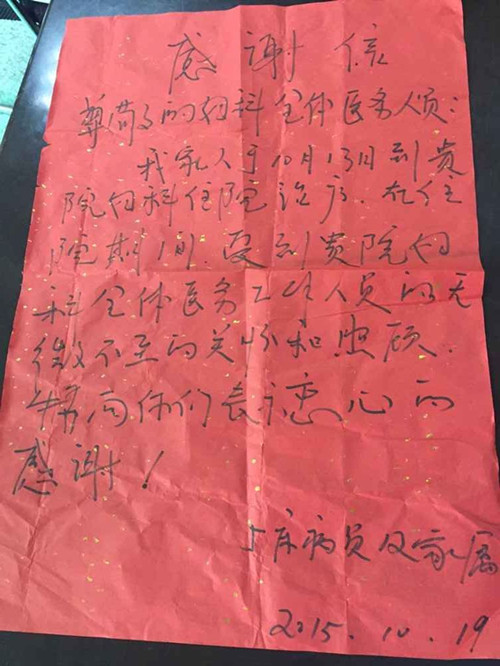 感谢信
尊敬的内科全体医务人员:
我家人于10月13日到贵
院内科住院治疗.在住
院期间.受到贵院内
科全体医务工作人员的无
微不至的关怀和照顾.
特向你们表心的
感谢!
床病员及家属
2015.10.19